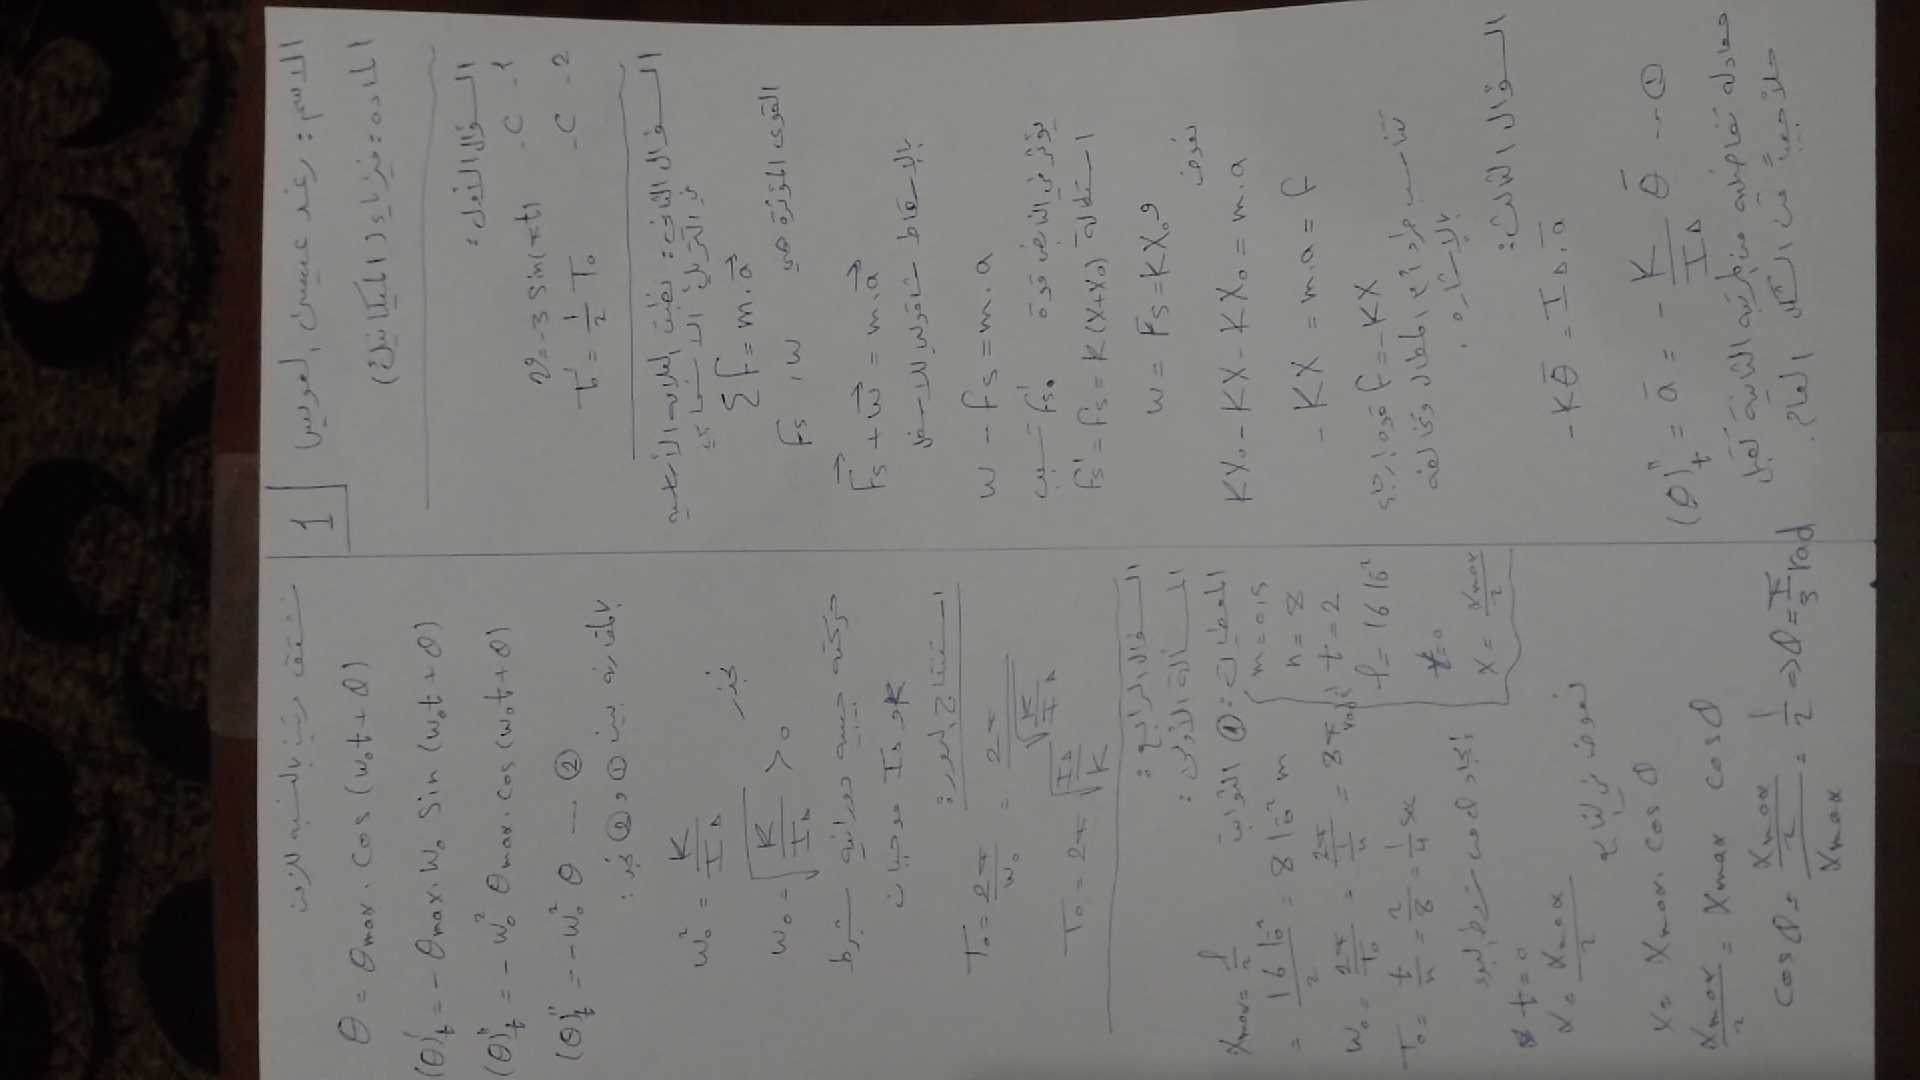 1
الاسم: رغد عيسى الويس
المادة: فيزياء (الميكانيك)
السؤال الأول:
1- C- v = -3 sin(πt)
2- C- T₀' = 1/2 T₀
السؤال الثاني: نطبق العلاقة الأساسية
في التحريك الانسحابي
∑F = m.a⃗
القوى المؤثرة هي Fs , w
F⃗s + w⃗ = m.a⃗
بالإسقاط على شاقول للأسفل
w - Fs = m.a
Fs' تسبب يؤثر في النابض قوة
Fs' = Fs = K(x+x₀) استطالة
w = Fs₀ = Kx₀ و
نعوض
Kx₀ - Kx - Kx₀ = m.a
-Kx = m.a = F
F = -Kx قوة إرجاع
تتناسب طرداً مع المطال وتخالفه
بالإشارة.
السؤال الثالث:
-Kθ̄ = I∆.ᾱ
(θ)''t = ᾱ = -K/I∆ θ̄ ---①
معادلة تفاضلية من المرتبة الثانية تقبل
حلاً جيبياً من الشكل العام.
نشتق مرتين بالنسبة للزمن
θ = θmax. cos(w₀t + φ)
(θ)'t = -θmax. w₀ sin(w₀t + φ)
(θ)''t = -w₀² θmax. cos(w₀t + φ)
(θ)''t = -w₀² θ ---②
بالمقارنة بين ① و ② نجد:
w₀² = K/I∆ نجذر
w₀ = √(K/I∆) > 0
حركته جيبية دورانية شرط
K و I∆ موجبات
استنتاج الدور:
T₀ = 2π/w₀ = 2π/√(K/I∆)
T₀ = 2π√(I∆/K)
السؤال الرابع:
المسألة الأولى:
المعطيات:
m = 0,5
n = 8
t = 2
ℓ = 16 10⁻²
t = 0
x = xmax/2
① الثوابت xmax = ℓ/2
= 16 10⁻²/2 = 8 10⁻² m
w₀ = 2π/T₀ = 2π/(1/4) = 8π rad.s⁻¹
T₀ = t/n = 2/8 = 1/4 s
إيجاد φ من شروط البدء
* t = 0
x = xmax/2 نعوض في التابع
x = xmax. cos φ
xmax/2 = xmax cos φ
cos φ = (xmax/2)/xmax = 1/2 ⇒ φ = π/3 rad